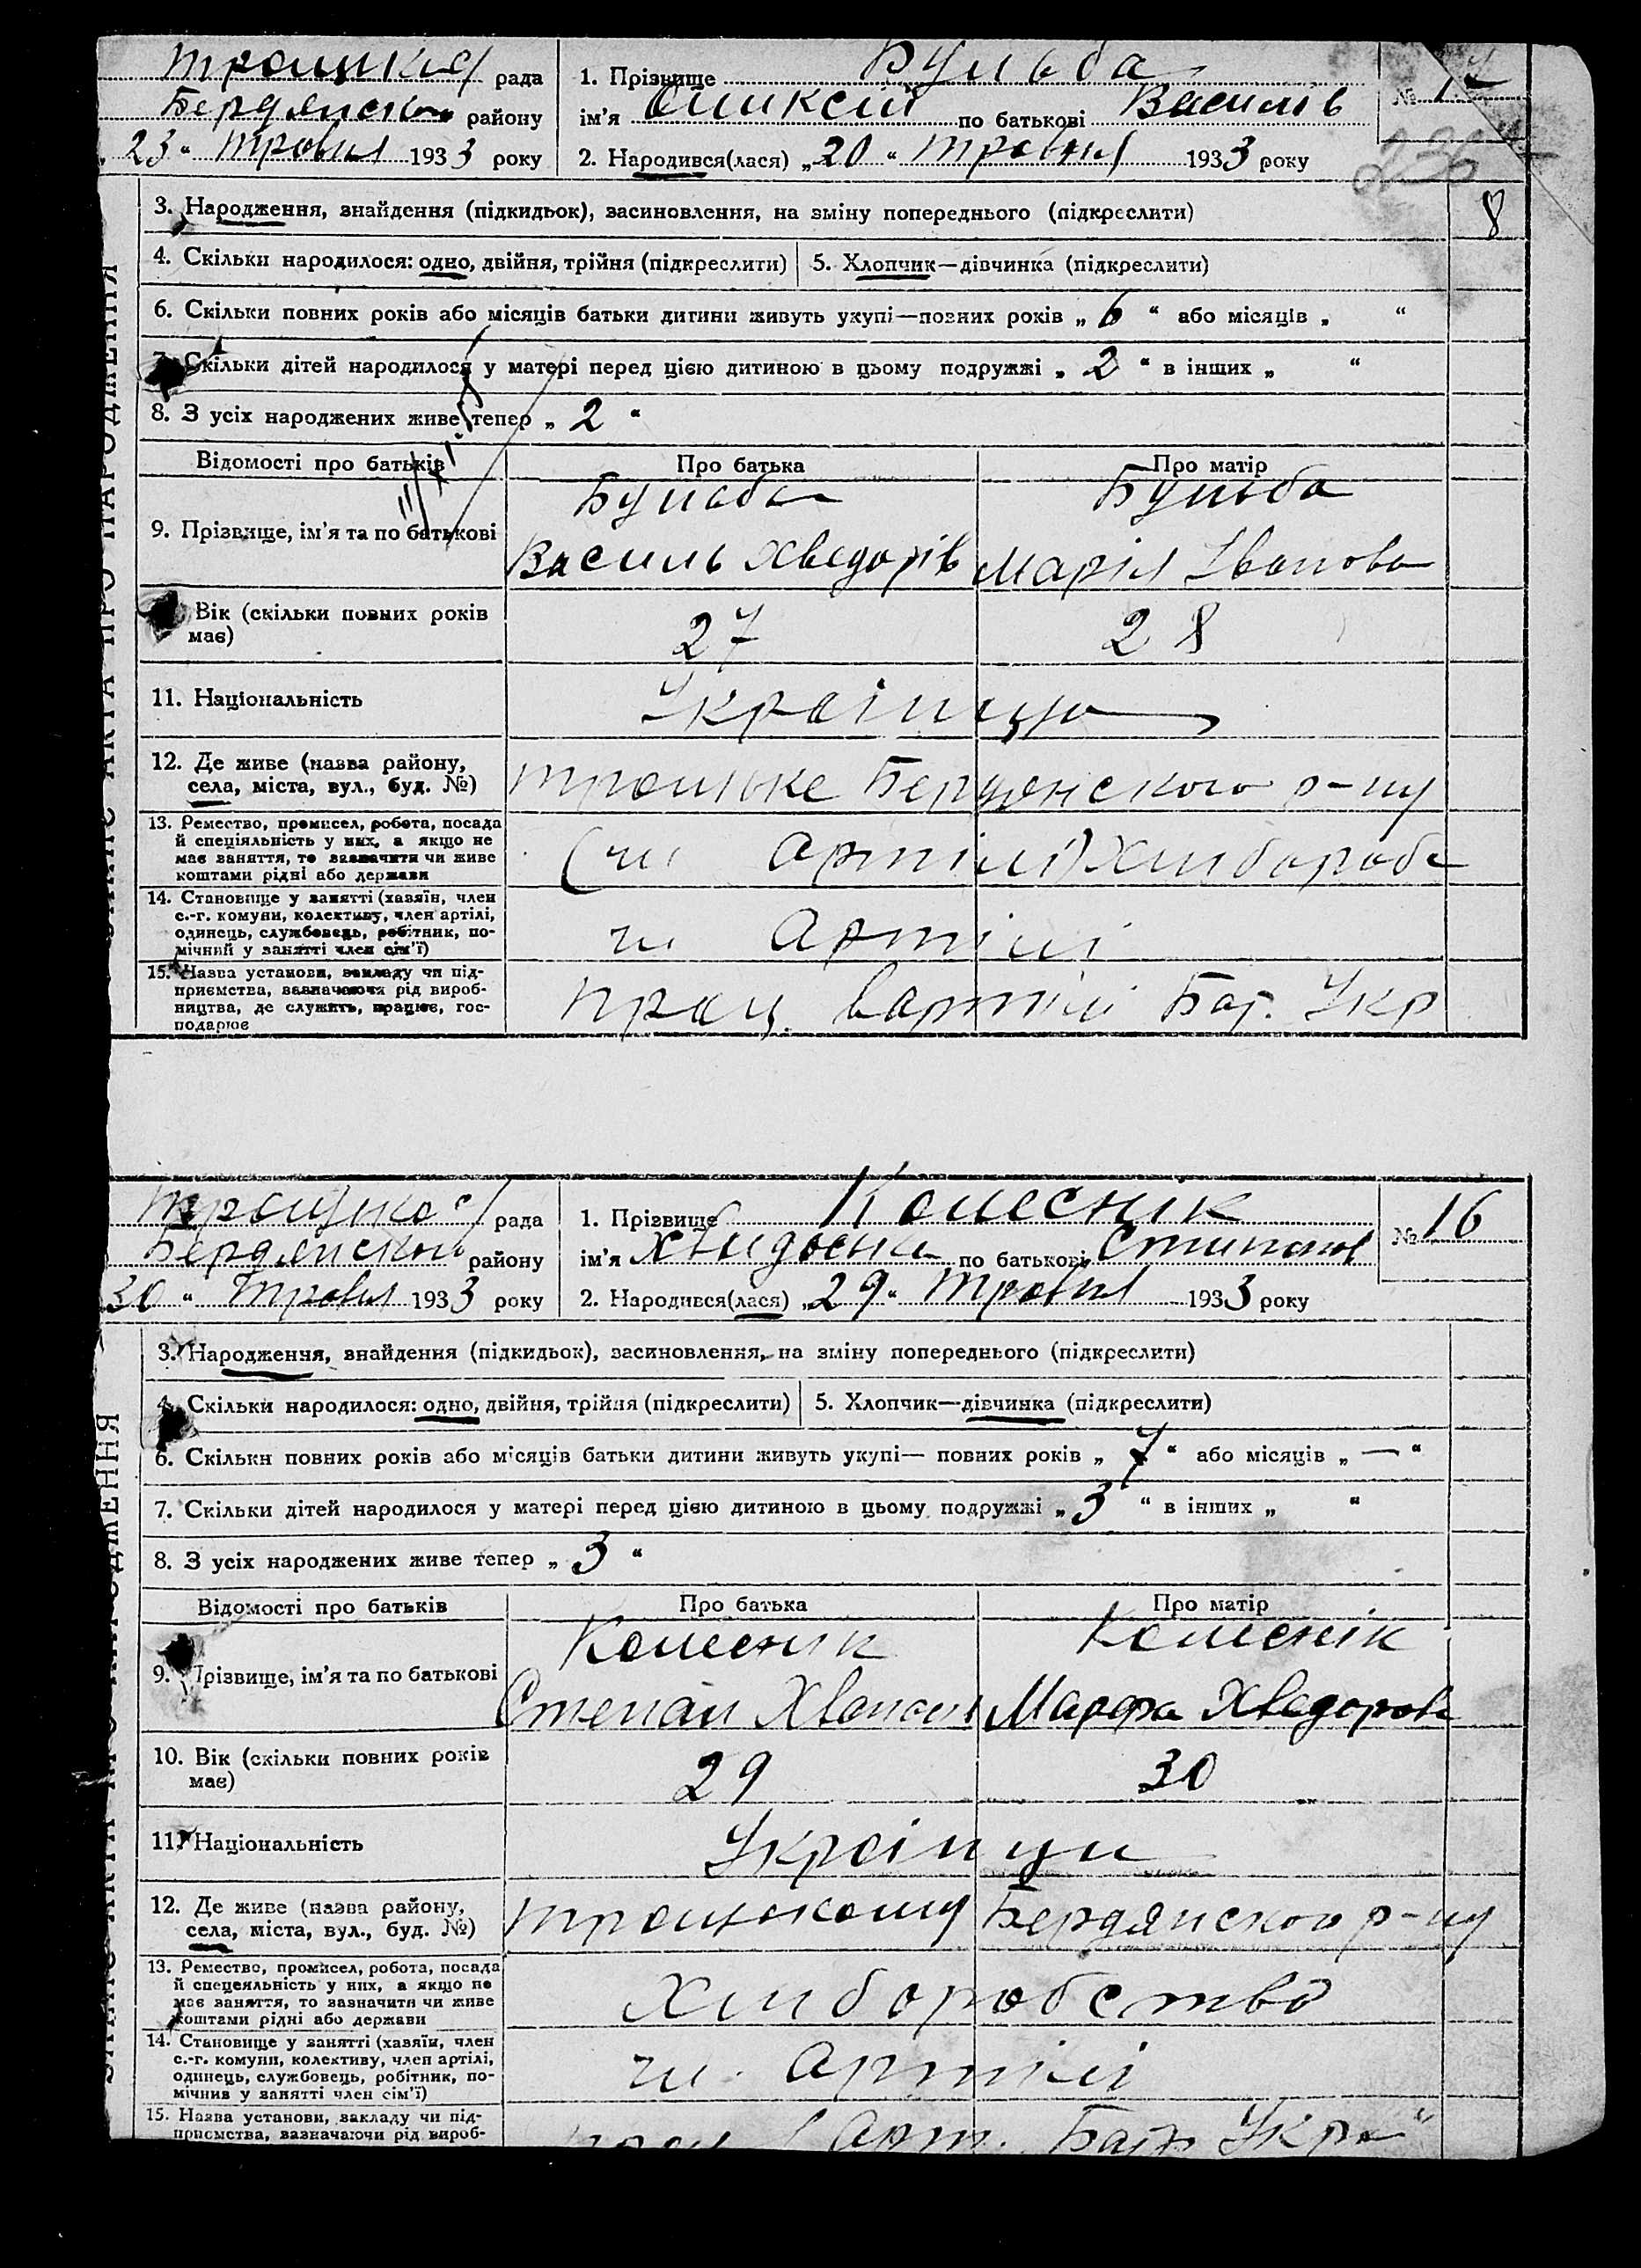 Троицька рада
Бердянськ району
23 " Травня 1933 року
1. Прізвище Бульба
ім'я Оликсій по батькові Василів
2. Народився(лася) „20 " травня 1933 року
№
8
3. Народження, знайдення (підкидьок), засиновлення, на зміну попереднього (підкреслити)
4. Скільки народилося: одно, двійня, трійня (підкреслити)
5. Хлопчик—дівчинка (підкреслити)
6. Скільки повних років або місяців батьки дитини живуть укупі—повних років „ 6 " або місяців „ "
7. Скільки дітей народилося у матері перед цією дитиною в цьому подружжі „ 2 " в інших „ "
8. З усіх народжених живе тепер „ 2 "
Відомості про батьків
Про батька
Про матір
9. Прізвище, ім'я та по батькові
Бульба
Василь Хведорів
Бульба
Марія Іванова
Вік (скільки повних років
має)
27
28
11. Національність
Українці
12. Де живе (назва району,
села, міста, вул., буд. №)
Троицьке Бердянского р-ну
13. Ремество, промисел, робота, посада
й спеціяльність у них, а якщо не
має заняття, то зазначити чи живе
коштами рідні або держави
(чл артілі) Хлибороб
14. Становище у занятті (хазяїн, член
с.-г. комуни, колективу, член артілі,
одинець, службовець, робітник, по-
мічний у занятті член сім'ї)
чл артілі
15. Назва установи, закладу чи під-
приємства, зазначаючи рід вироб-
ництва, де служить, працює, гос-
подарює
прац. в артілі Баг. Укр
ЗАПИС АКТА ПРО НАРОДЖЕННЯ
рада
Бердянського району
30 " Травня 1933 року
1. Прізвище Колеснік
ім'я Хвидоська по батькові Стипанов
2. Народився(лася) „29 " травня 1933 року
№ 16
3. Народження, знайдення (підкидьок), засиновлення, на зміну попереднього (підкреслити)
4. Скільки народилося: одно, двійня, трійня (підкреслити)
5. Хлопчик—дівчинка (підкреслити)
6. Скільки повних років або місяців батьки дитини живуть укупі— повних років „ 7 " або місяців „ — "
7. Скільки дітей народилося у матері перед цією дитиною в цьому подружжі „ 3 " в інших „ "
8. З усіх народжених живе тепер „ 3 "
Відомості про батьків
Про батька
Про матір
9. Прізвище, ім'я та по батькові
Колеснік
Степан
Колеснік
Марфа Хведорова
10. Вік (скільки повних років
має)
29
30
11. Національність
Українци
12. Де живе (назва району,
села, міста, вул., буд. №)
Троицькому Бердянского р-ну
13. Ремество, промисел, робота, посада
й спецеяльність у них, а якщо не
має заняття, то зазначити чи живе
коштами рідні або держави
Хлиборобство
14. Становище у занятті (хазяїн, член
с.-г. комуни, колективу, член артілі,
одинець, службовець, робітник, по-
мічнив у занятті член сім'ї)
чл. артілі
15. Назва установи, закладу чи під-
приємства, зазначаючи рід вироб-
Арт. Баг Укра"